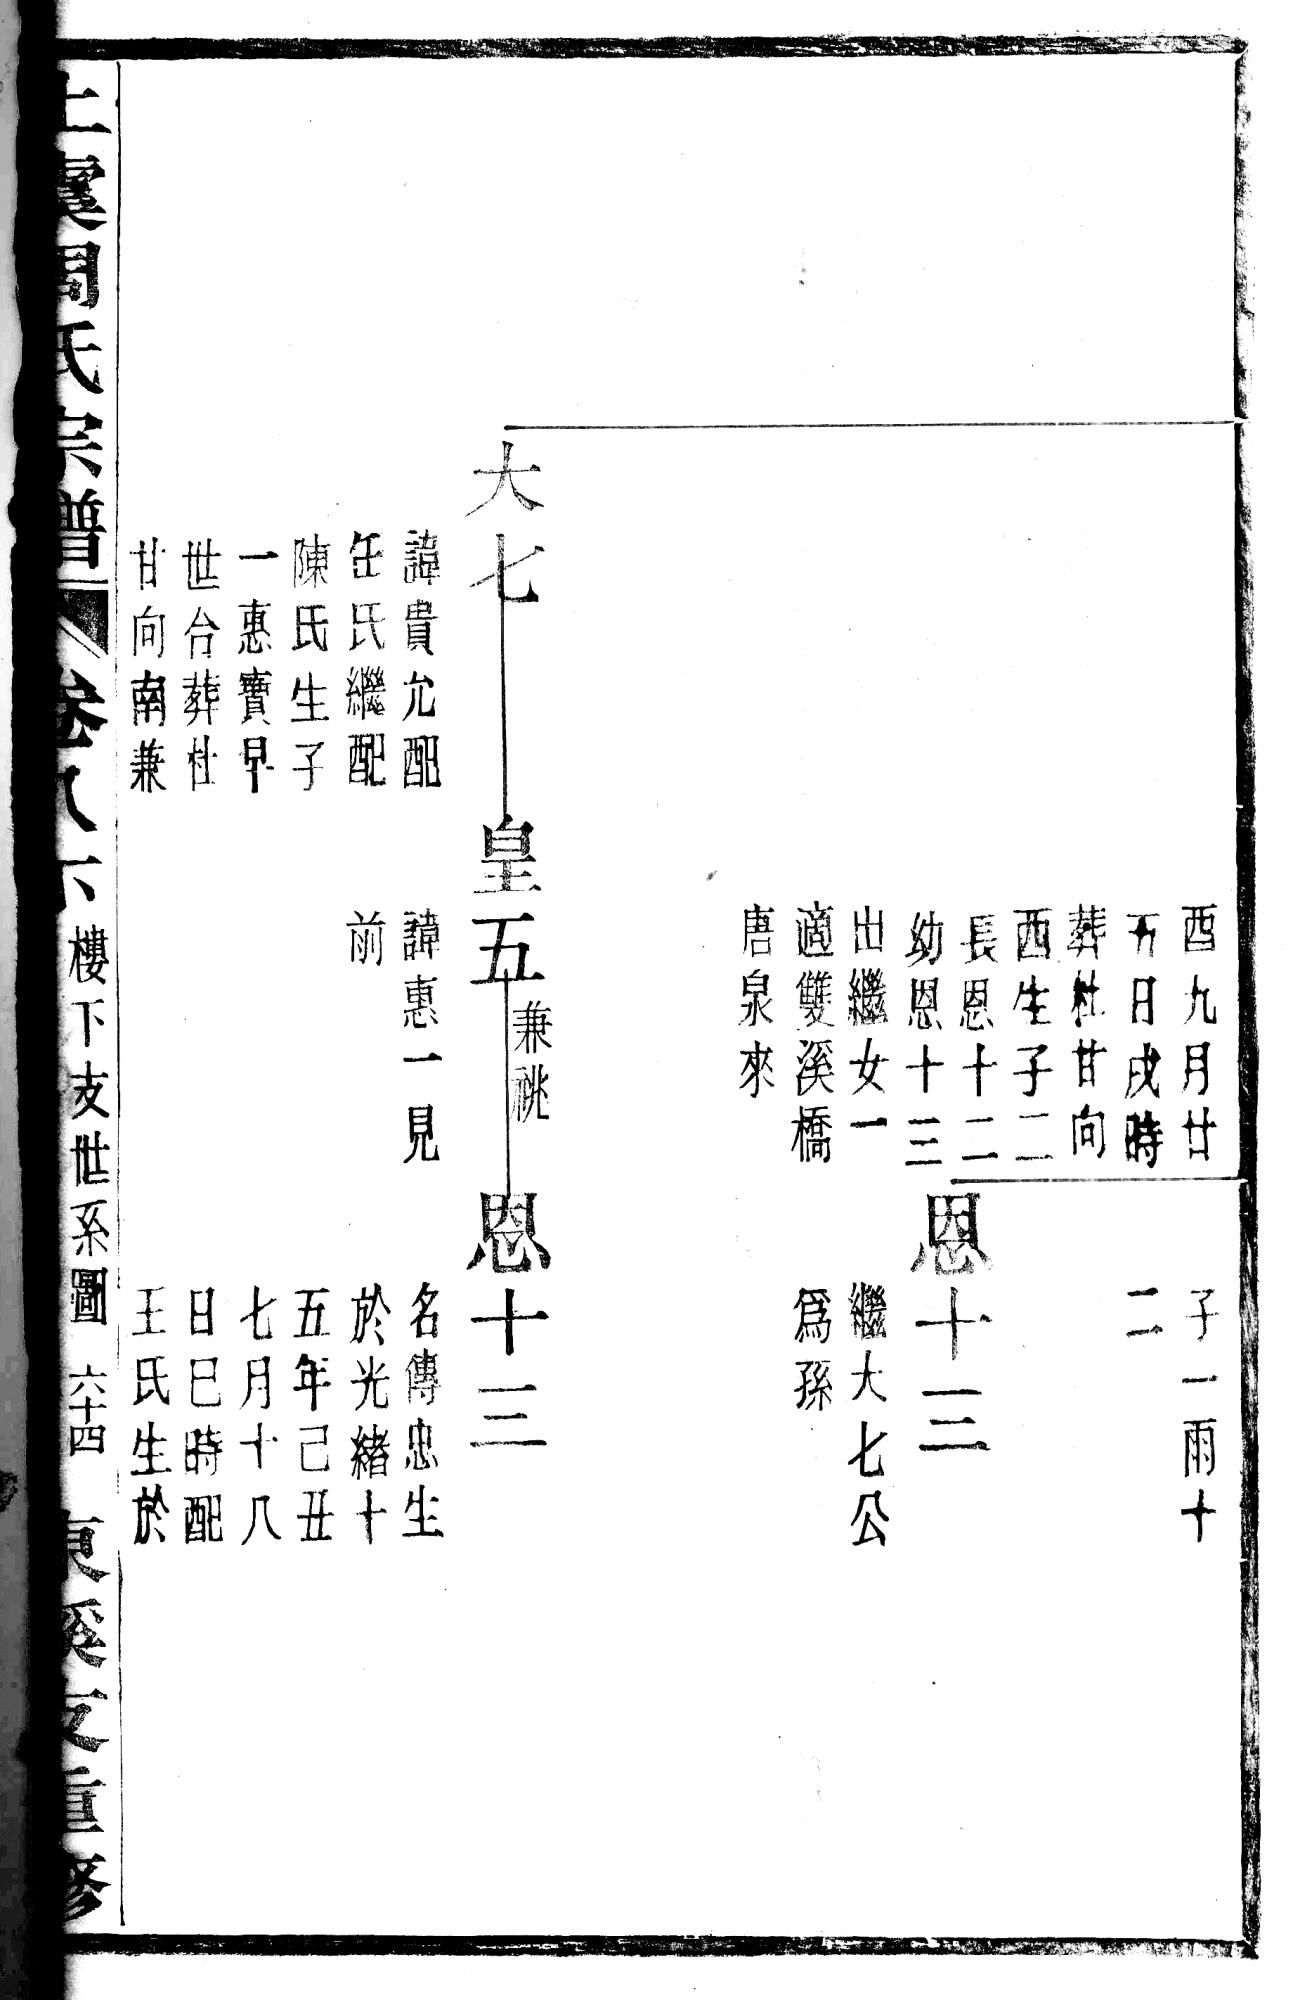 酉九月廿
五日戌時
葬杜甘向
西生子二
長恩十二
幼恩十三
出繼女一
適雙溪橋
唐泉來
子一雨十
二
恩十三
繼大七公
爲孫
大七
諱貴允配
任氏繼配
陳氏生子
一惠寶早
世台葬杜
甘向南兼
皇五
兼祧
諱惠一見
前
恩十三
名傳忠生
於光緒十
五年己丑
七月十八
日巳時配
王氏生於
上虞周氏宗譜
卷八下
樓下支世系圖
六十四
東溪支重修